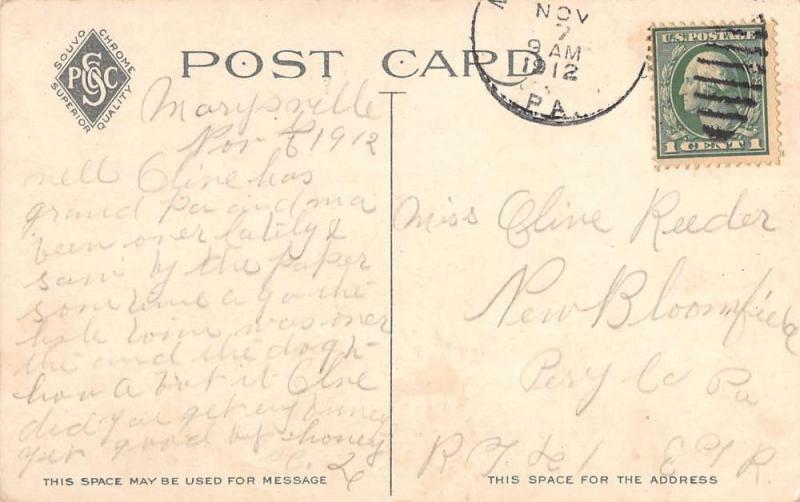 SOUVO CHROME
SUPERIOR QUALITY
POST CARD
NOV
7
9 AM
1912
PA.
U.S. POSTAGE
1 CENT 1
Marysville
Nov 6 1912
nell Olive has
grand Pa and ma
been over lately I
saw by the paper
som time ago the
hole was over
the and the dogh
how a bot it Olive
did you get eny
yet good by honey
Miss Olive Reeder
New Bloomfield
Pery Co Pa
THIS SPACE MAY BE USED FOR MESSAGE
THIS SPACE FOR THE ADDRESS